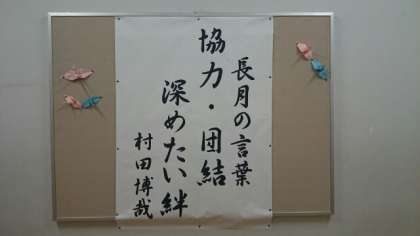 長月の言葉
協力・団結
深めたい絆
村田博哉